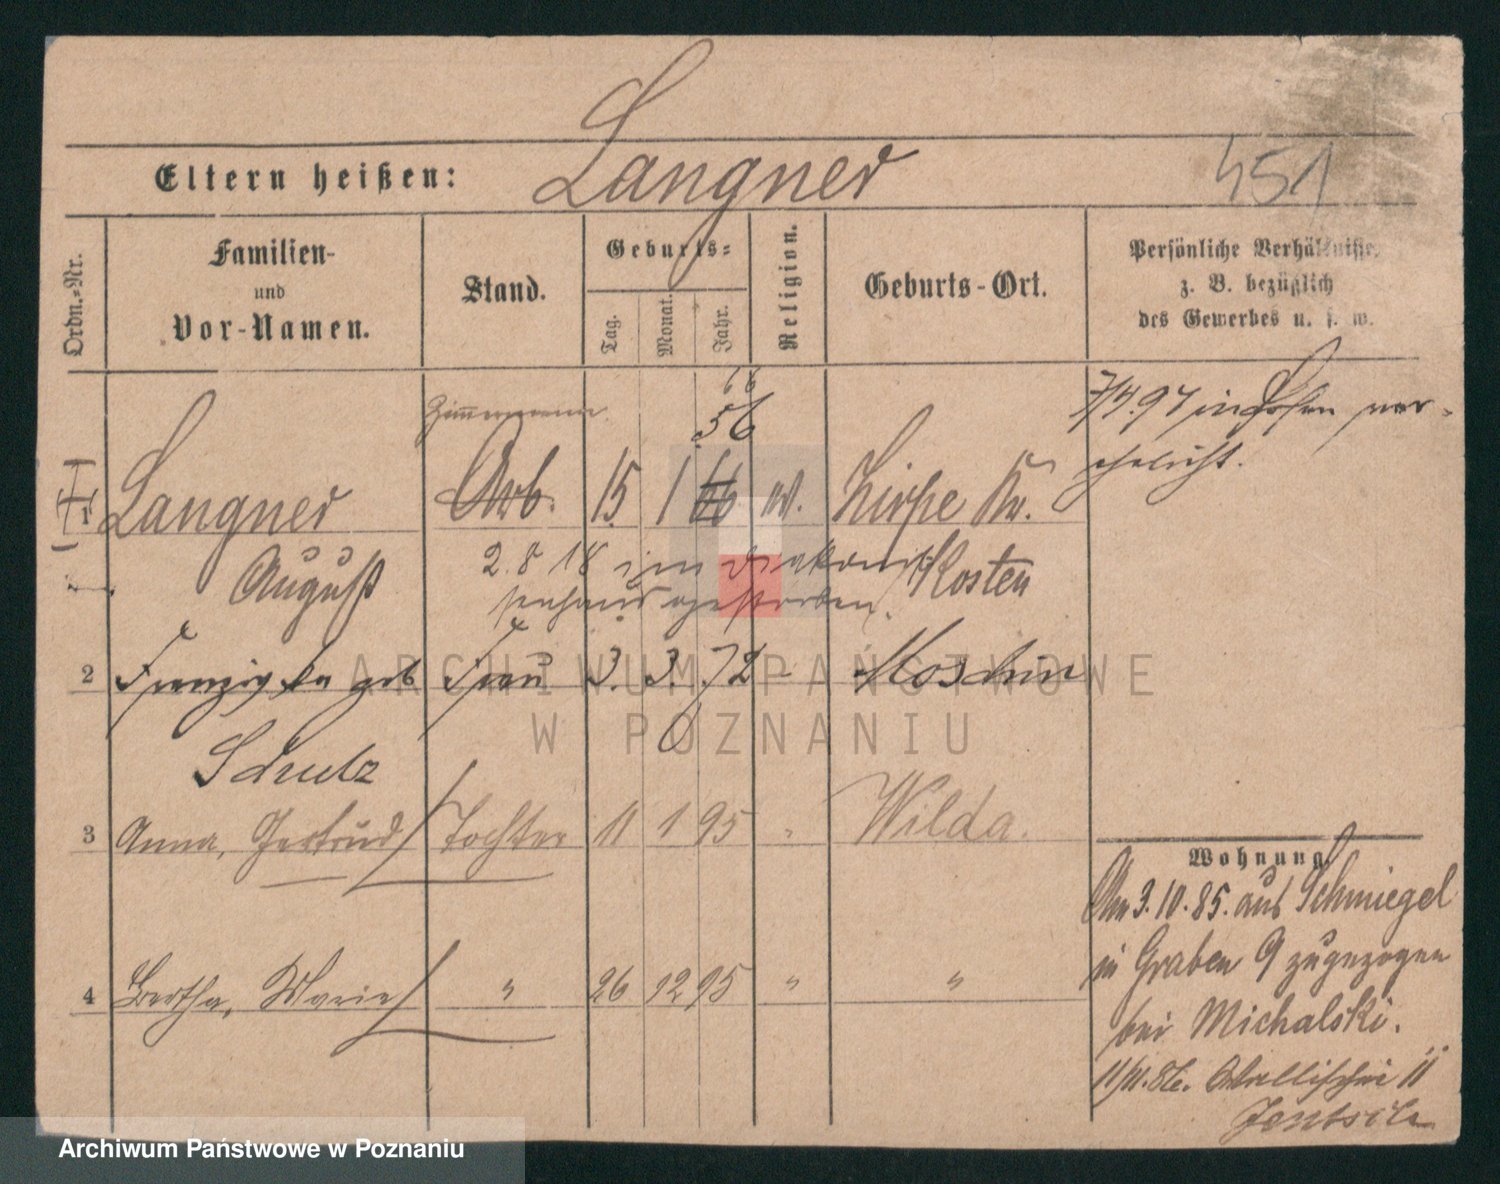 Langner
Eltern heißen:
451
Ordn.-Nr.
Familien-
und
Vor-Namen.
Stand.
Geburts-
Tag.
Monat.
Jahr.
Religion.
Geburts-Ort.
Persönliche Verhältnisse,
z. B. bezüglich
des Gewerbes u. s. w.
66
56
7/4.97 in Posen ver-
ehelicht.
1 Langner Arb. 15 1 66 ev. Kr.
August
Kosten
2.8 18 im Diakonis
senhaus gestorben.
2 Franziska geb Frau 3. 3. 72 - Moschin
Schulz
3 Anna, Gertrud Tochter 11 1 95 " Wilda.
4 Bertha, Marie " 26 12 95 " "
Wohnung.
Am 3.10.85. aus Schmiegel
in Graben 9 zugezogen
bei Michalski.
11/11.86. Wallischei 11
ARCHIWUM PAŃSTWOWE
W POZNANIU
Archiwum Państwowe w Poznaniu